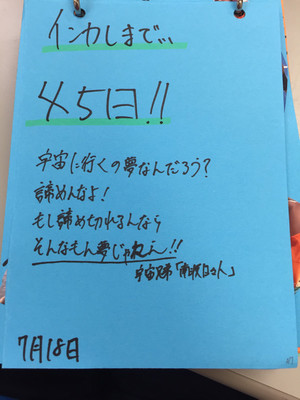 インカレまで...
45日!!
宇宙に行くの夢なんだろう?
諦めんなよ!
もし諦め切れるんなら
そんなもん夢じゃねぇ!!
宇宙兄弟「南波日々人」
7月18日